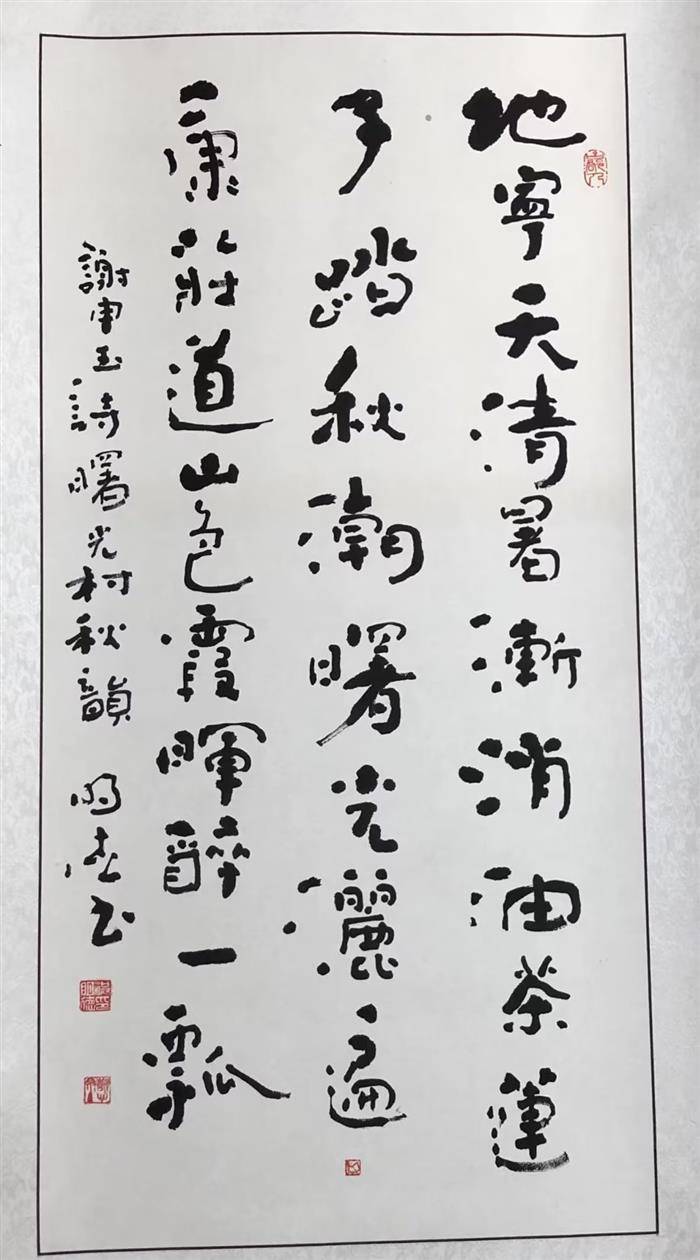 地寧天清暑漸消油茶蓮
子踏秋潮曙光灑遍
康莊道山色霞暉醉一瓢
謝申玉詩曙光村秋韻 明德書